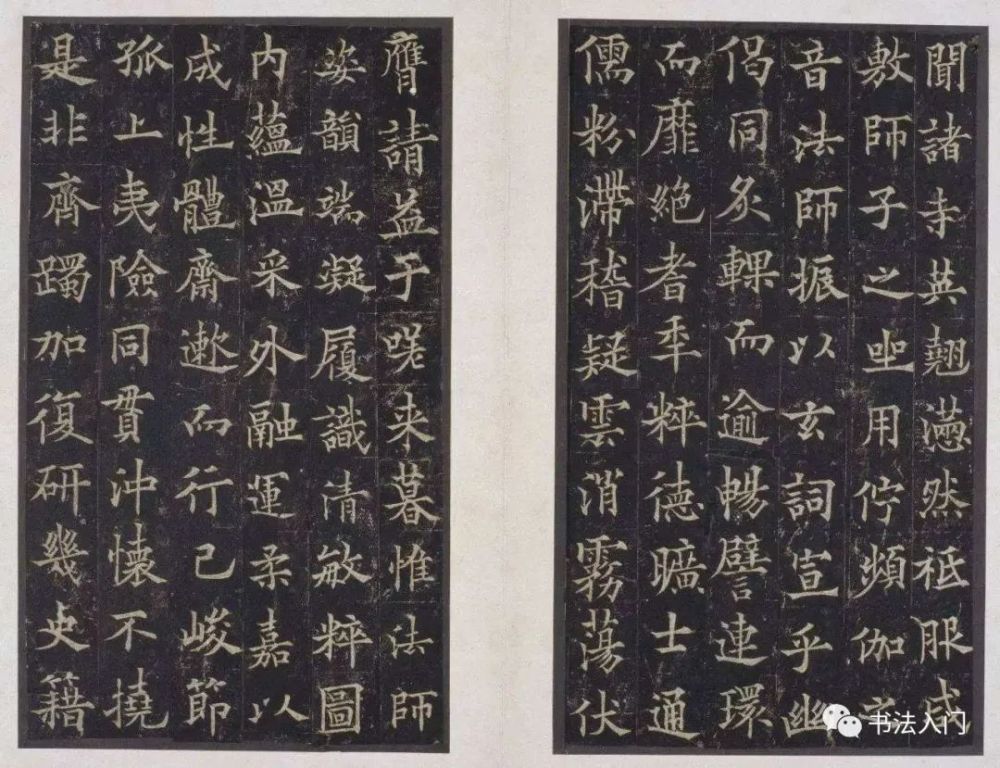 聞諸寺英翹懣然祗服咸
敷師子之坐用佇頻伽
音法師振以玄詞宣乎幽
偈同炙輠而逾暢譬連環
而靡絕耆年粹德曠士通
儒粉滯稽疑雲消霧蕩伏
膺請益于嗟来暮惟法師
姿韻端凝履識清敏粹圖
内蘊溫采外融運柔嘉以
成性體齋遫而行己峻節
孤上夷險同貫沖懷不撓
是非齊躅加復研幾史籍
书法入门